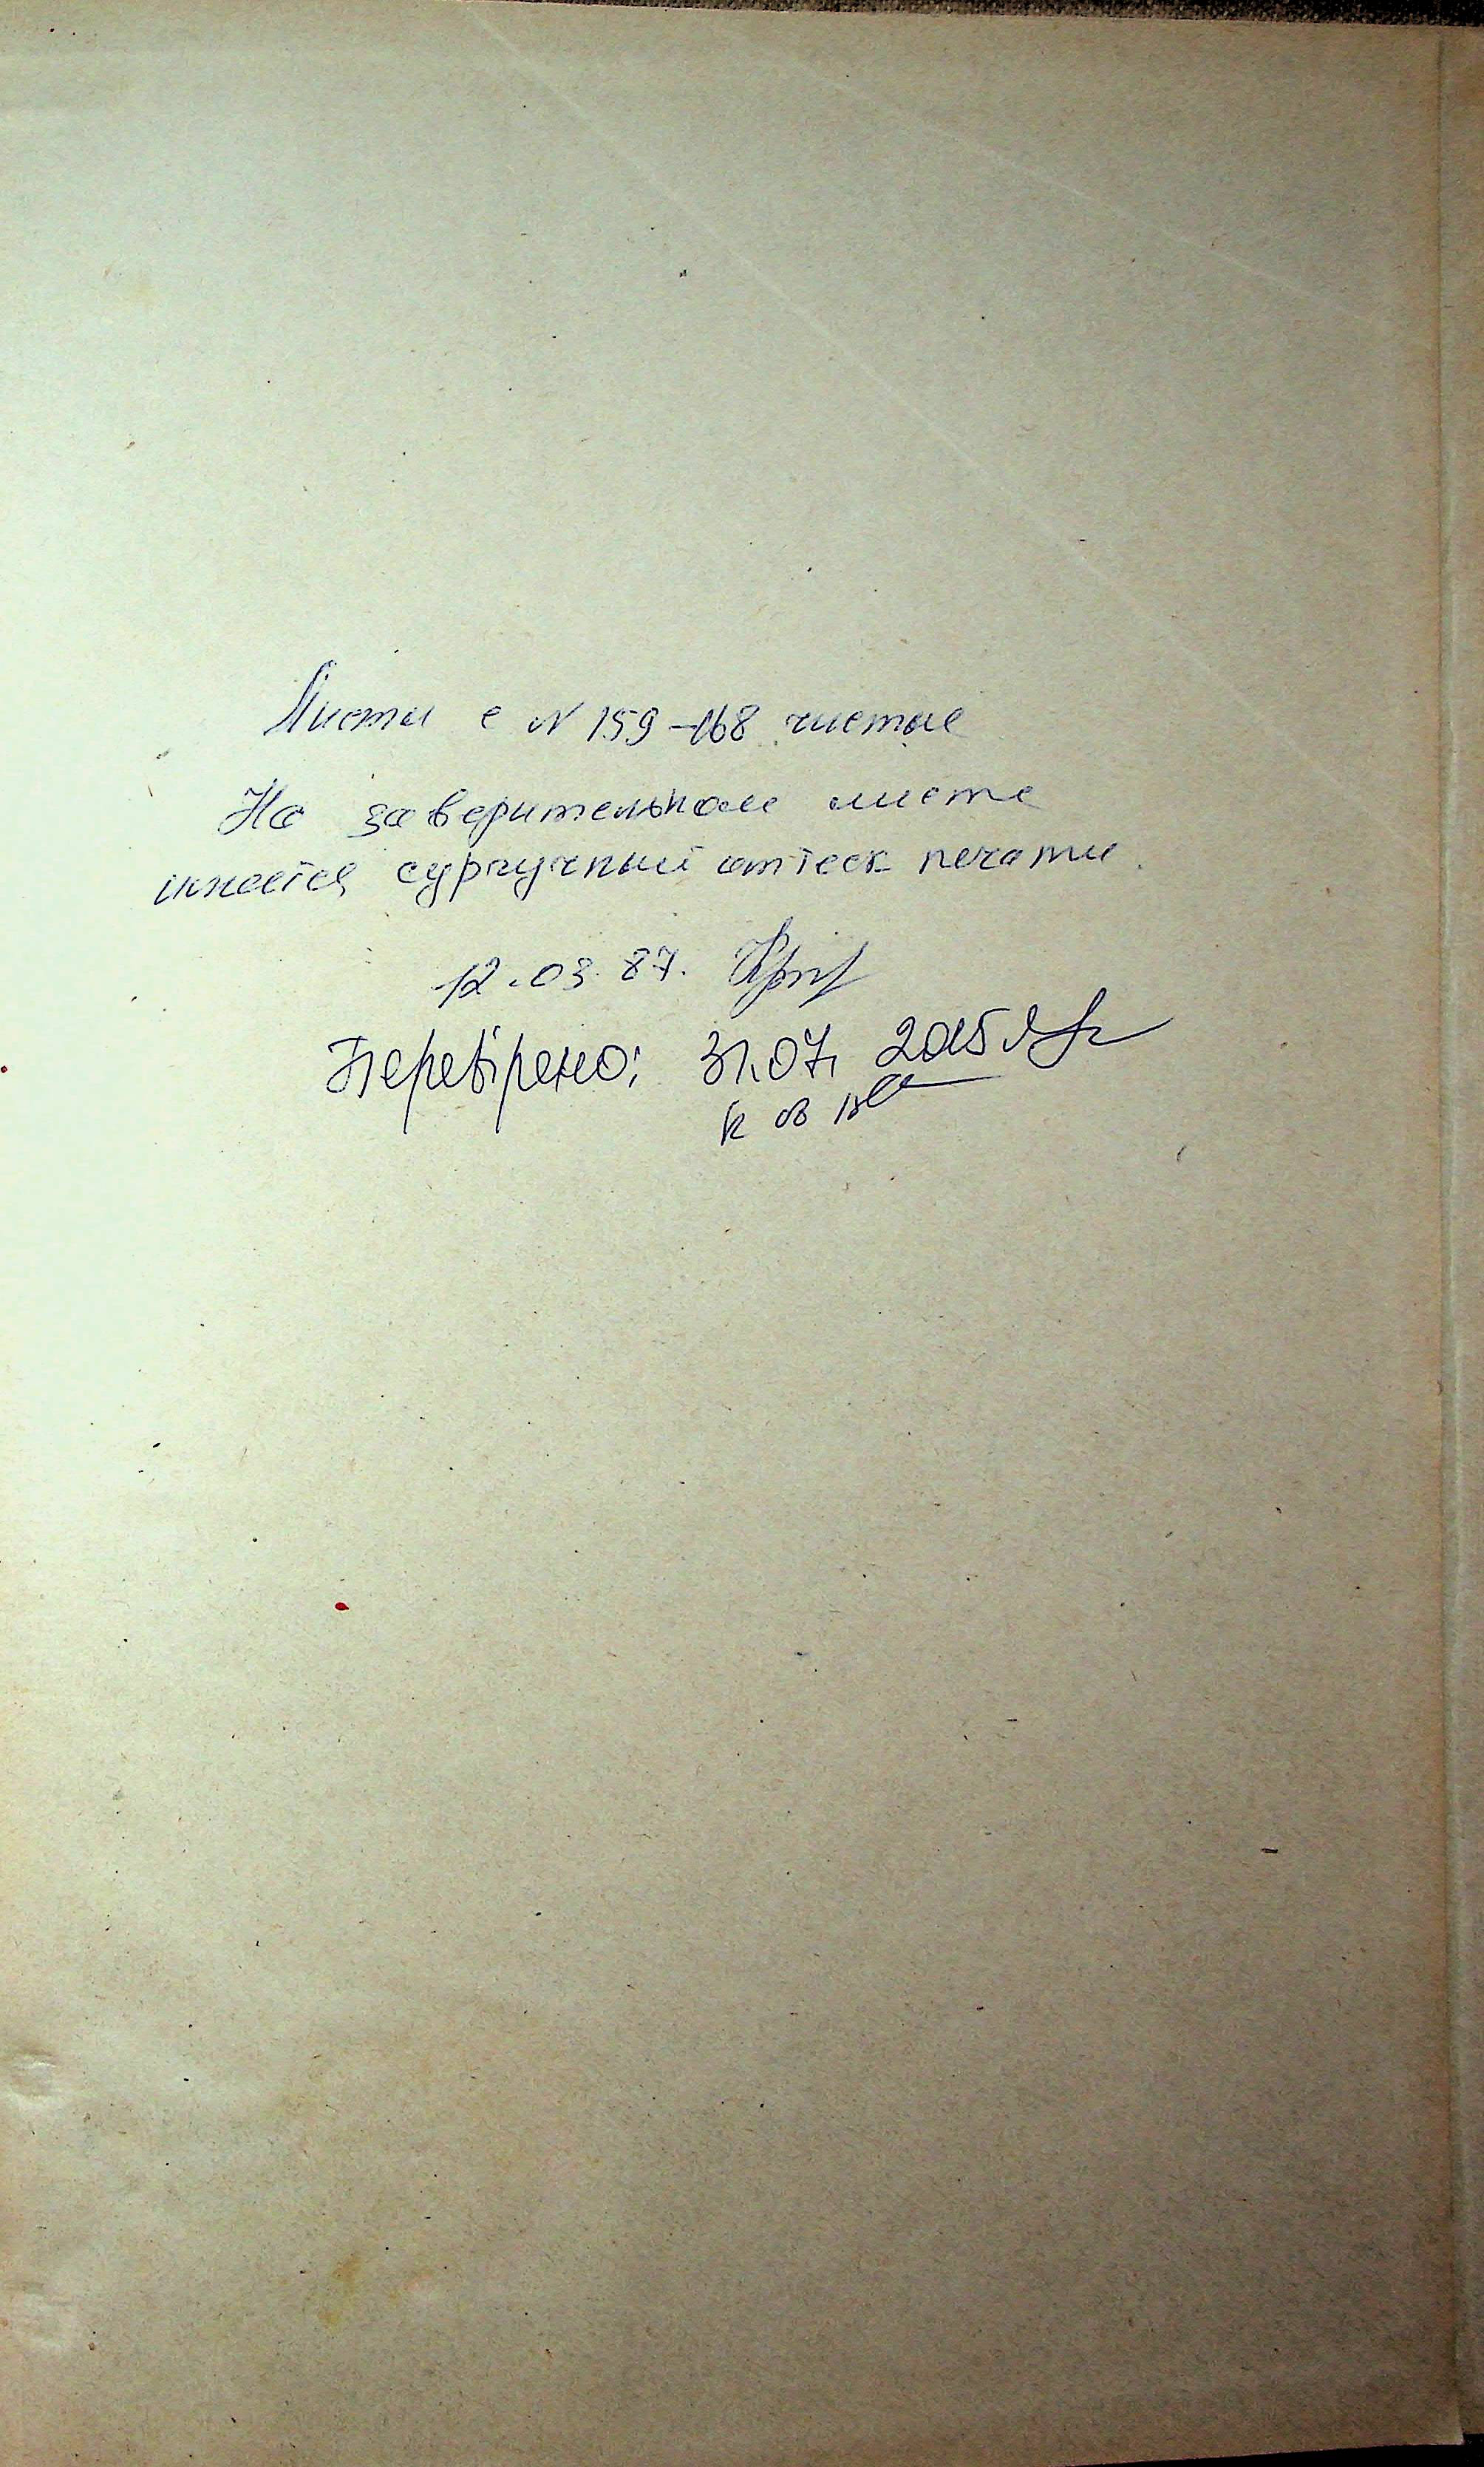 Листы с N 159-168 чистые
На заверительном листе
имеется сургучный оттеск печати.
12.03.87.
Перевірено: 31.07. 2015